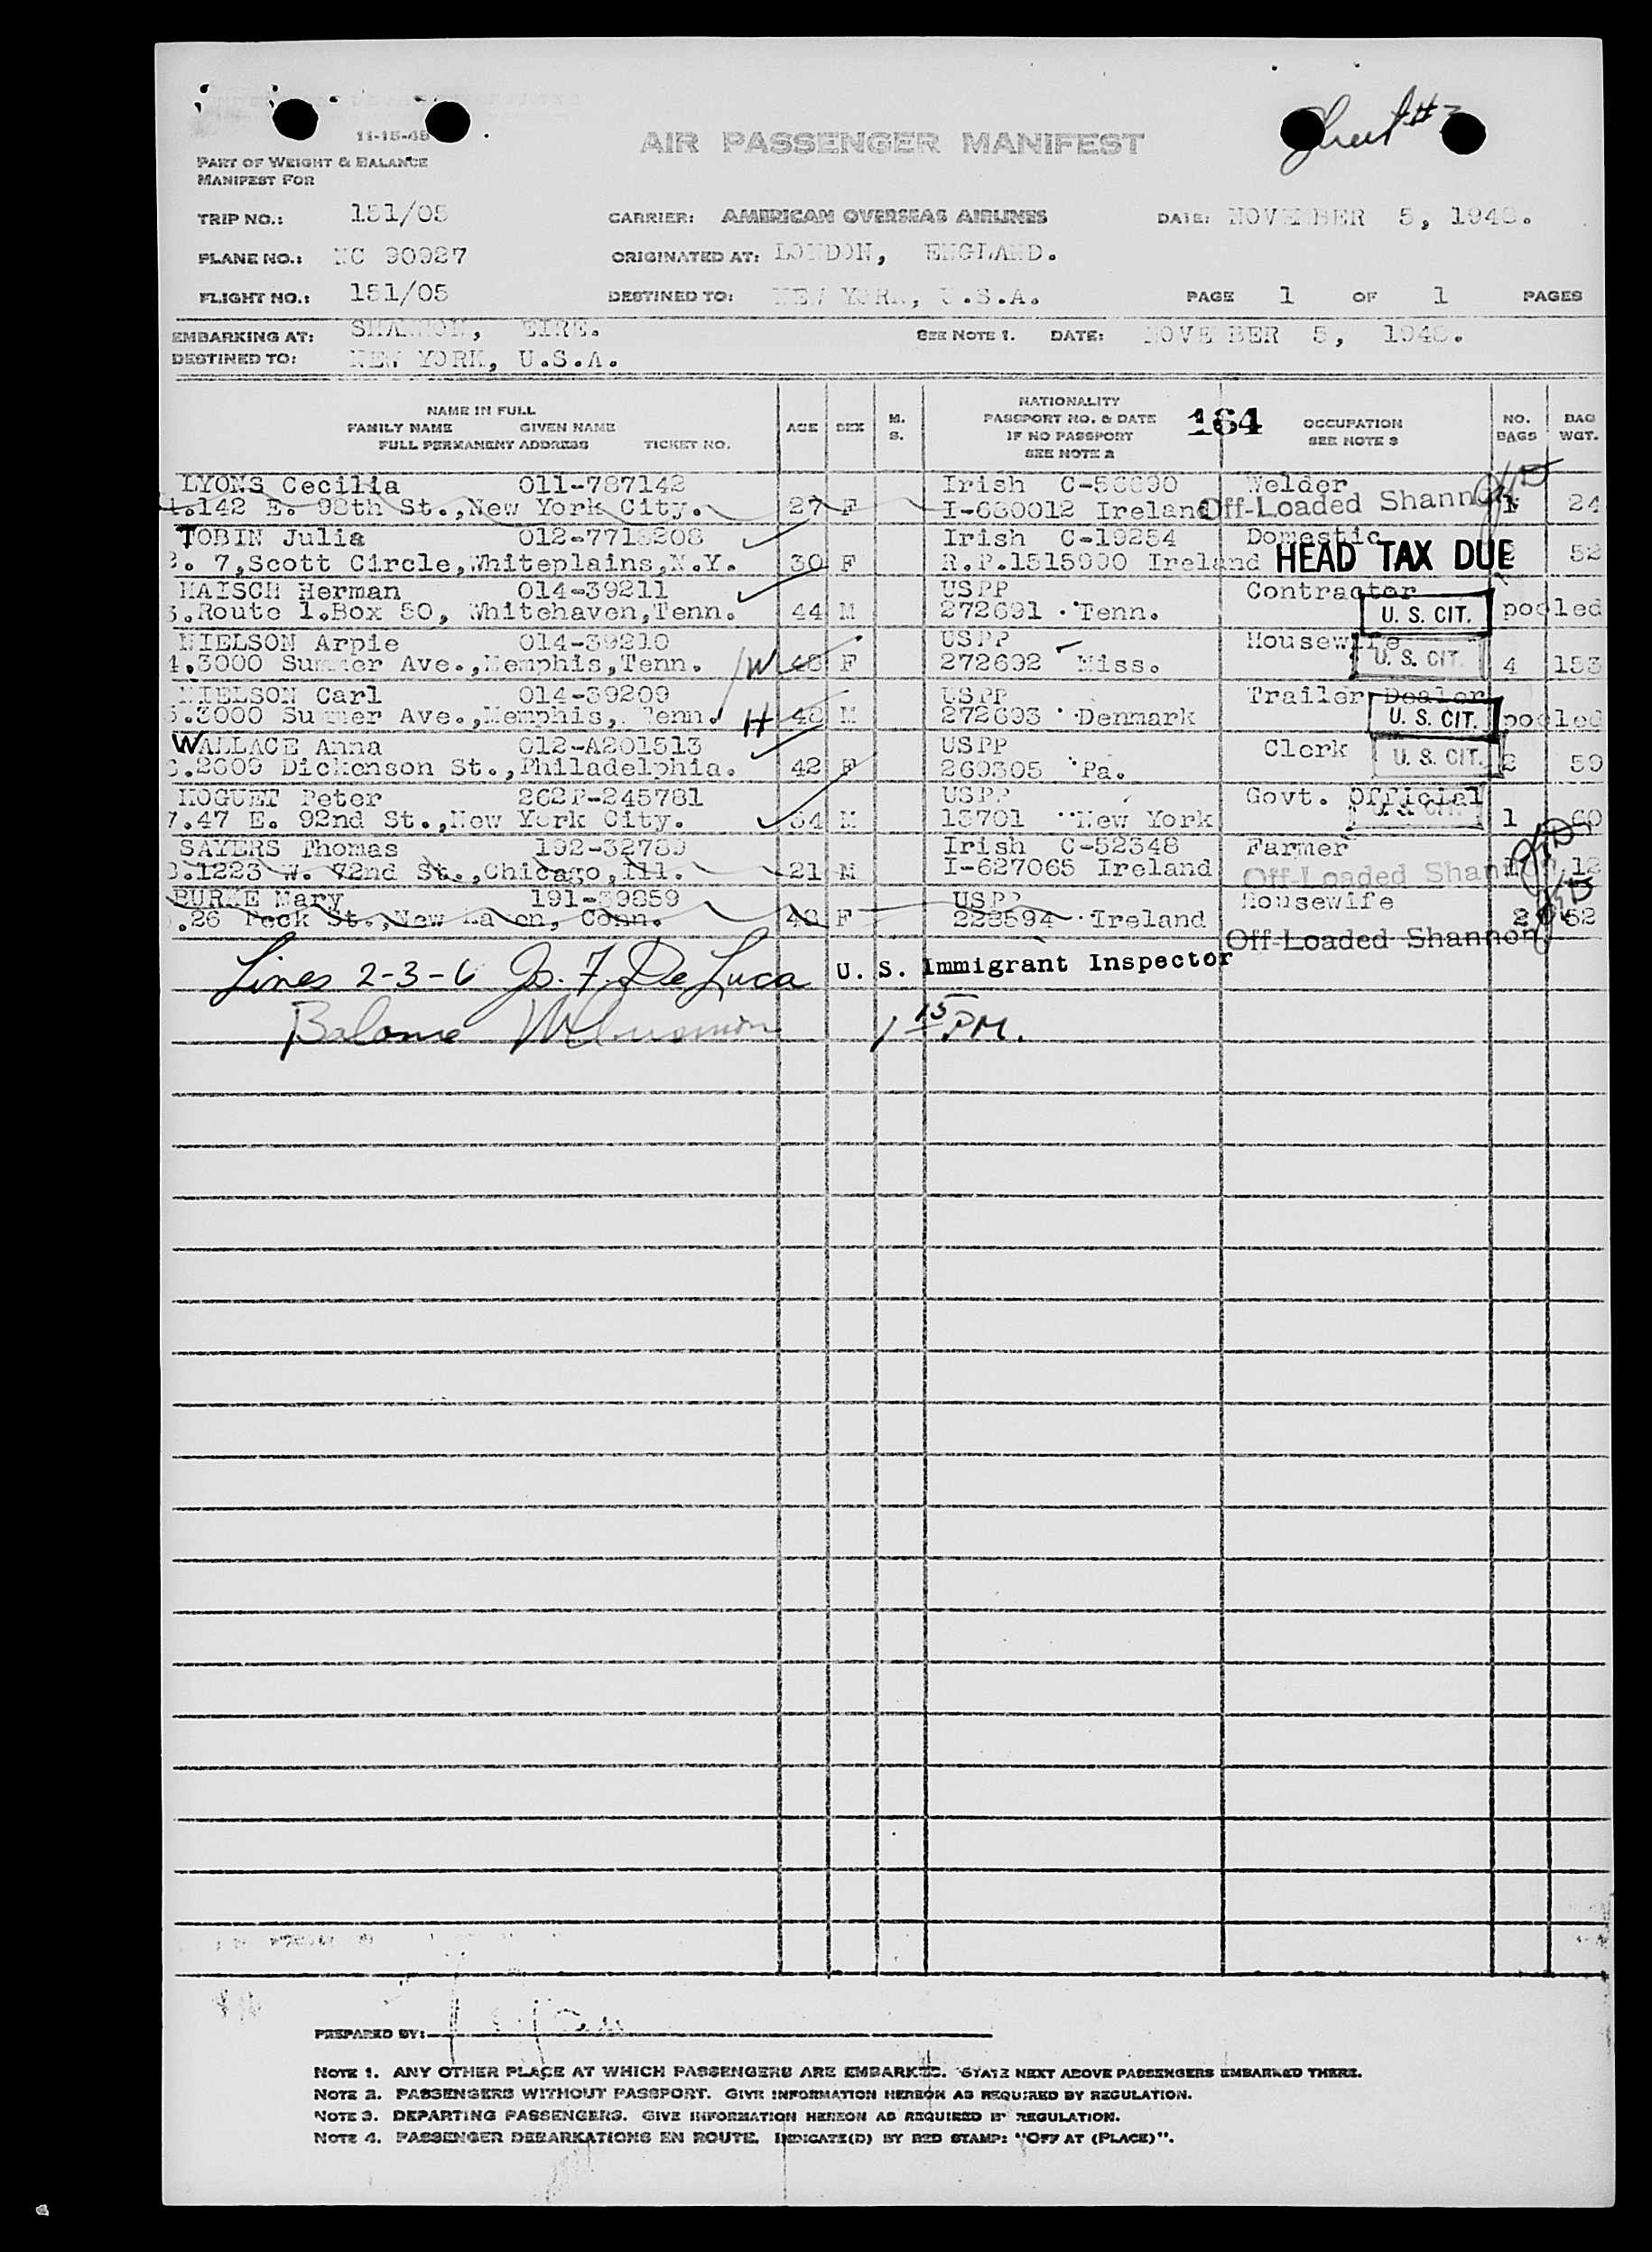 Sheet #
11-15-45
AIR PASSENGER MANIFEST
PART OF WEIGHT & BALANCE
MANIFEST FOR
TRIP NO.: 151/05 CARRIER: AMERICAN OVERSEAS AIRLINES DATE: NOVEMBER 5, 1948.
PLANE NO.: NC 90987 ORIGINATED AT: LONDON, ENGLAND.
FLIGHT NO.: 151/05 DESTINED TO: NEW YORK, U.S.A. PAGE 1 OF 1 PAGES
EMBARKING AT: SHANNON, EIRE. SEE NOTE 1. DATE: NOVEMBER 5, 1948.
DESTINED TO: NEW YORK, U.S.A.
NAME IN FULL
FAMILY NAME GIVEN NAME
FULL PERMANENT ADDRESS TICKET NO.
AGE SEX M. S.
NATIONALITY
PASSPORT NO. & DATE
IF NO PASSPORT
SEE NOTE 2
164
OCCUPATION
SEE NOTE 3
NO. BAGS
BAG WGT.
LYONS Cecilia 011-787142 Irish Welder
1.142 E. 98th St.,New York City. 27 F Ireland Off-Loaded Shannon 1 24
TOBIN Julia Irish C-19254 Domestic
2. 7,Scott Circle,Whiteplains,N.Y. 30 F R.P.1515990 Ireland HEAD TAX DUE 52
MAISCH Herman 014-39211 USPP Contractor
3.Route 1.Box 50, Whitehaven,Tenn. 44 M 272691 Tenn. U. S. CIT. pooled
NIELSON Arpie 014-39210 USPP Housewife
4.3000 Summer Ave.,Memphis,Tenn. W F 272692 Miss. U. S. CIT. 4 153
NIELSON Carl 014-39209 USPP Trailer Dealer
5.3000 Summer Ave.,Memphis, Tenn. H 48 M 272693 Denmark U. S. CIT. pooled
WALLACE Anna 012-A201513 USPP Clerk
6.2609 Dickenson St.,Philadelphia. 42 F 269305 Pa. U. S. CIT. 2 59
HOGUET Peter 262P-245781 USPP Govt. Official
7.47 E. 92nd St.,New York City. M 13701 New York U. S. CIT. 1 60
SAYERS Thomas 192-32789 Irish C-52348 Farmer
8.1223 W. 72nd St.,Chicago,Ill. 21 M I-627065 Ireland Off-Loaded Shannon 12
BURKE Mary 191-39859 USPP Housewife
.26 Peck St.,New Haven, Conn. F 223594 Ireland 2 52
Off-Loaded Shannon
Lines 2-3-6 Jo. F. De Luca U. S. Immigrant Inspector
Balance 1 15 PM.
PREPARED BY:
NOTE 1. ANY OTHER PLACE AT WHICH PASSENGERS ARE EMBARKED. STATE NEXT ABOVE PASSENGERS EMBARKED THERE.
NOTE 2. PASSENGERS WITHOUT PASSPORT. GIVE INFORMATION HEREON AS REQUIRED BY REGULATION.
NOTE 3. DEPARTING PASSENGERS. GIVE INFORMATION HEREON AS REQUIRED BY REGULATION.
NOTE 4. PASSENGER DEBARKATIONS EN ROUTE. INDICATE(D) BY RED STAMP: "OFF AT (PLACE)".